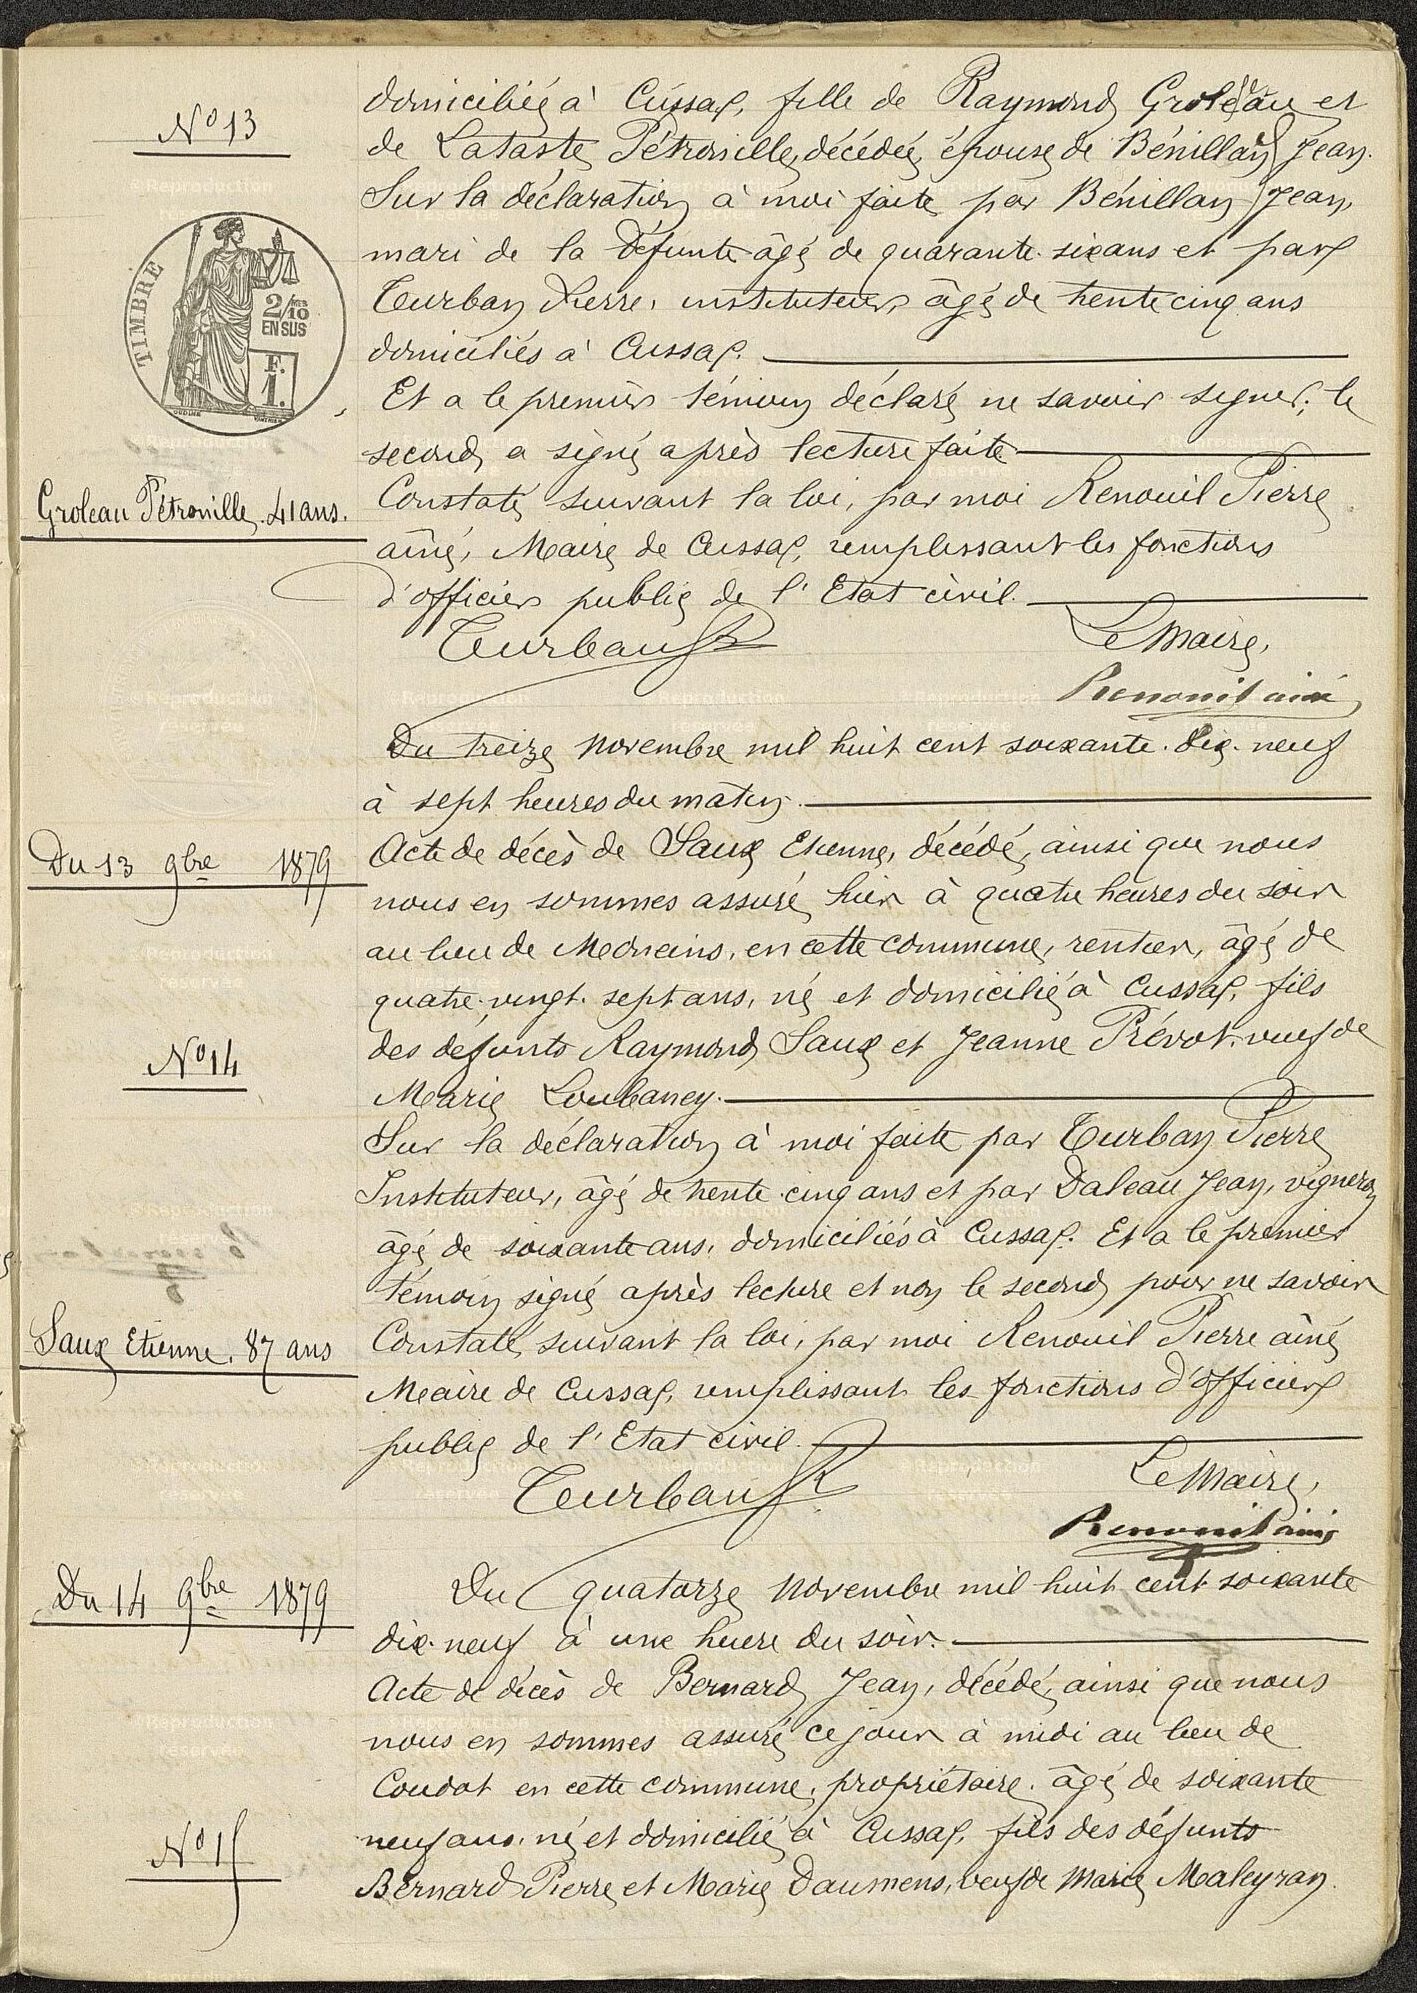 domiciliée à Cussac, fille de Raymond Groleau et
N° 13
de Lataste Pétronille, décédée, épouse de Bénillan Jean.
Sur la déclaration à moi faite par Bénillan Jean,
mari de la défunte âgé de quarante-six ans et par
Turban Pierre, instituteur, âgé de trente cinq ans
domiciliés à Cussac.
TIMBRE
2/10
EN SUS
F.
1.
Et a le premier témoin déclaré ne savoir signer, le
second a signé après lecture faite
Groleau Pétronille. 41 ans.
Constaté, suivant la loi, par moi Renouil Pierre
aîné, Maire de Cussac, remplissant les fonctions
d'officier public de l'Etat civil.
Turban Le Maire,
Renouil ainé
Du treize Novembre mil huit cent soixante-dix-neuf
à sept heures du matin.
Du 13 9bre 1879
Acte de décès de Saux Etienne, décédé, ainsi que nous
nous en sommes assuré, hier à quatre heures du soir
au lieu de en cette commune, rentier, âgé de
quatre-vingt-sept ans, né et domicilié à Cussac, fils
N° 14
des défunts Raymond Saux et Jeanne Prévot, veuf de
Marie Loubaney.
Sur la déclaration à moi faite par Turban Pierre
Instituteur, âgé de trente-cinq ans et par Daleau Jean, vigneron
âgé de soixante ans, domiciliés à Cussac. Et a le premier
témoin signé après lecture et non le second pour ne savoir
Saux Etienne. 87 ans
Constaté, suivant la loi, par moi Renouil Pierre aîné
Maire de Cussac, remplissant les fonctions d'officier
public de l'Etat civil.
Turban Le Maire,
Renouil ainé
Du 14 9bre 1879
Du quatorze Novembre mil huit cent soixante
dix-neuf à une heure du soir.
Acte de décès de Bernard Jean, décédé, ainsi que nous
nous en sommes assuré, ce jour à midi au lieu de
Coudot en cette commune, propriétaire, âgé de soixante
N° 15
neuf ans, né et domicilié à Cussac, fils des défunts
Bernard Pierre et Marie Daumens, veuf de Marie Maleyran.